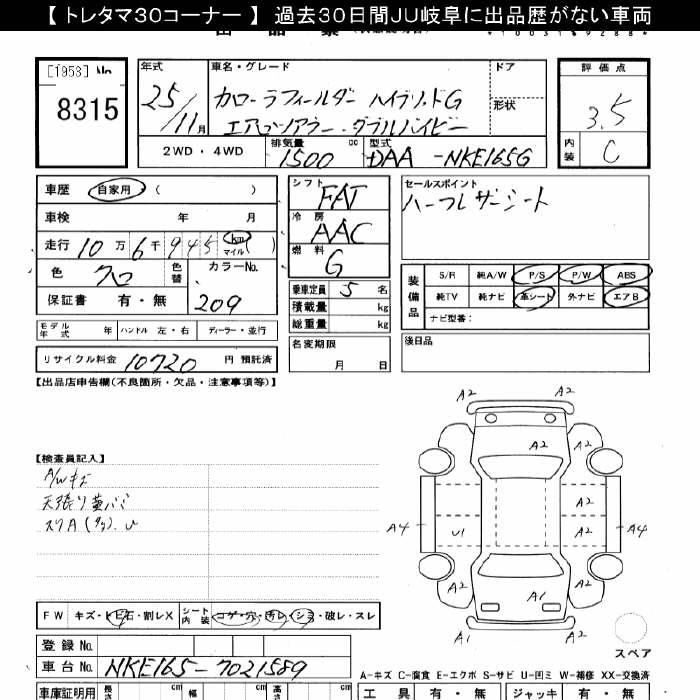 【 トレタマ30コーナー 】 過去30日間JU岐阜に出品歴がない車両
[1953] No
8315
年式
25/11月
車名・グレード
カローラフィールダー ハイブリッドG
エアロツアラー・ダブルバイビー
ドア
形状
評価点
3.5
内装
C
2WD・4WD
排気量
1500
cc
型式
DAA-NKE165G
車歴
自家用
( )
車検 年 月
走行 10万6千945 km マイル
色
クロ
色替
カラーNo.
209
保証書 有・無
シフト
FAT
冷房
AAC
燃料
G
乗車定員 5 名
積載量 kg
総重量 kg
セールスポイント
ハーフレザーシート
装備品
S/R 純A/W P/S P/W ABS
純TV 純ナビ 革シート 外ナビ エアB
ナビ型番:
モデル年式 年 ハンドル 左・右 ディーラー・並行
リサイクル料金 10720 円 預託済
名変期限
月 日
後日品
【出品店申告欄(不良箇所・欠品・注意事項等)】
【検査員記入】
A/Wキズ
天張り
スリA
A2
A2
A2
A2
A2
A2
A4
U1
A2
A4
A2
A2
A1
A1
A2
スペア
FW キズ・ト石・割レX
シート内装 コゲ・穴・汚レ・シミ・破レ・スレ
登録No.
車台No. NKE165-7021589
A-キズ C-腐食 E-エクボ S-サビ U-凹ミ W-補修 XX-交換済
車庫証明用 長さ cm 幅 cm 高さ cm
工具 有・無 ジャッキ 有・無